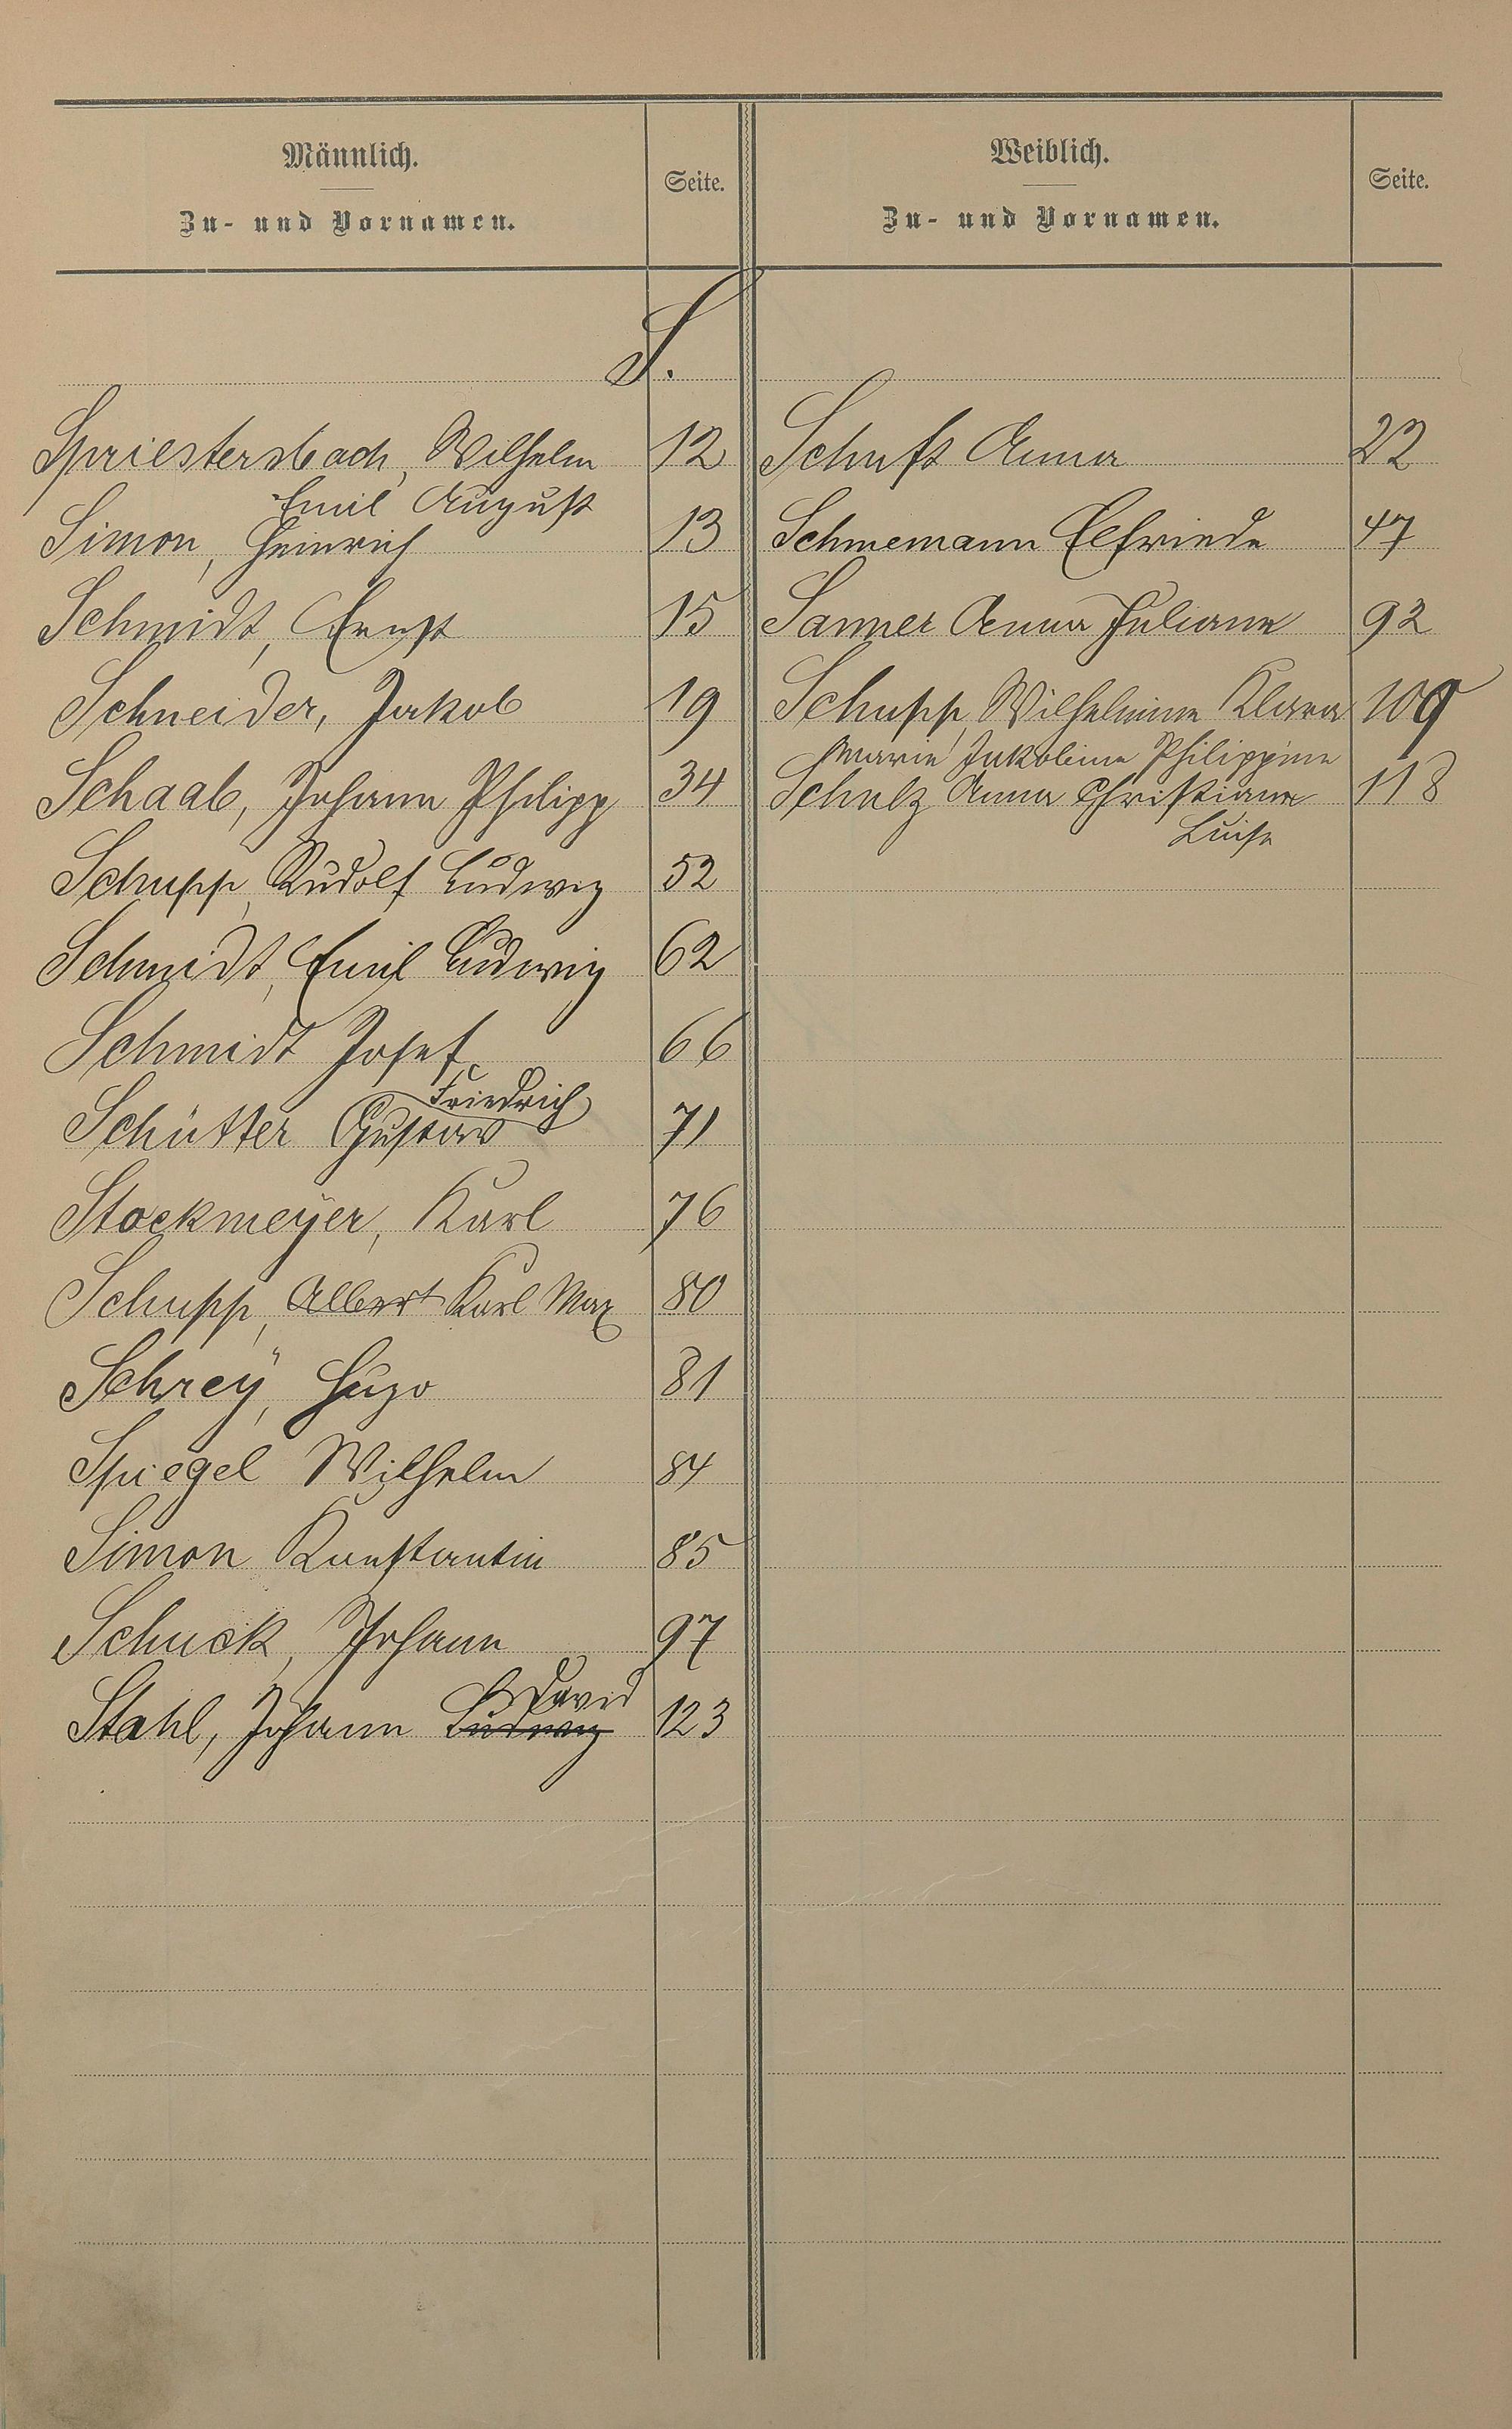 Männlich.
Zu- und Vornamen.
Seite.
Weiblich.
Zu- und Vornamen.
Seite.
S.
Spriestersbach, Wilhelm 12
Emil August
Simon, Heinrich 13
Schmidt, Ernst 15
Schneider, Jakob 19
Schaab, Johann Philipp 34
Schupp, Rudolf Ludwig 52
Schmidt, Emil Ludwig 62
Schmidt Josef 66
Friedrich
Schütter Gustav 71
Stockmeÿer, Karl 76
Schupp, Albert Karl Max 80
Schreÿ, Hugo 81
Spiegel Wilhelm 84
Simon Konstantin 85
Schuck, Johann 97
David
Stahl, Johann Ludwig 123
Schuft Anna 22
Schmemann Elfriede 47
Sanner Anna Juliane 92
Schupp, Wilhelmine Klara 109
Marie Jakobine Philippine
Schulz Anna Christiane 118
Luise